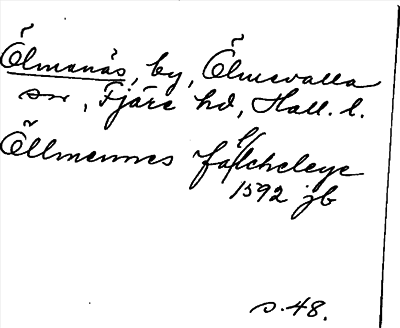 Ölmanäs, by, Ölmevalla
sn, Fjäre hd, Hall. l.
Öllmennes
1592 jb
s. 48.